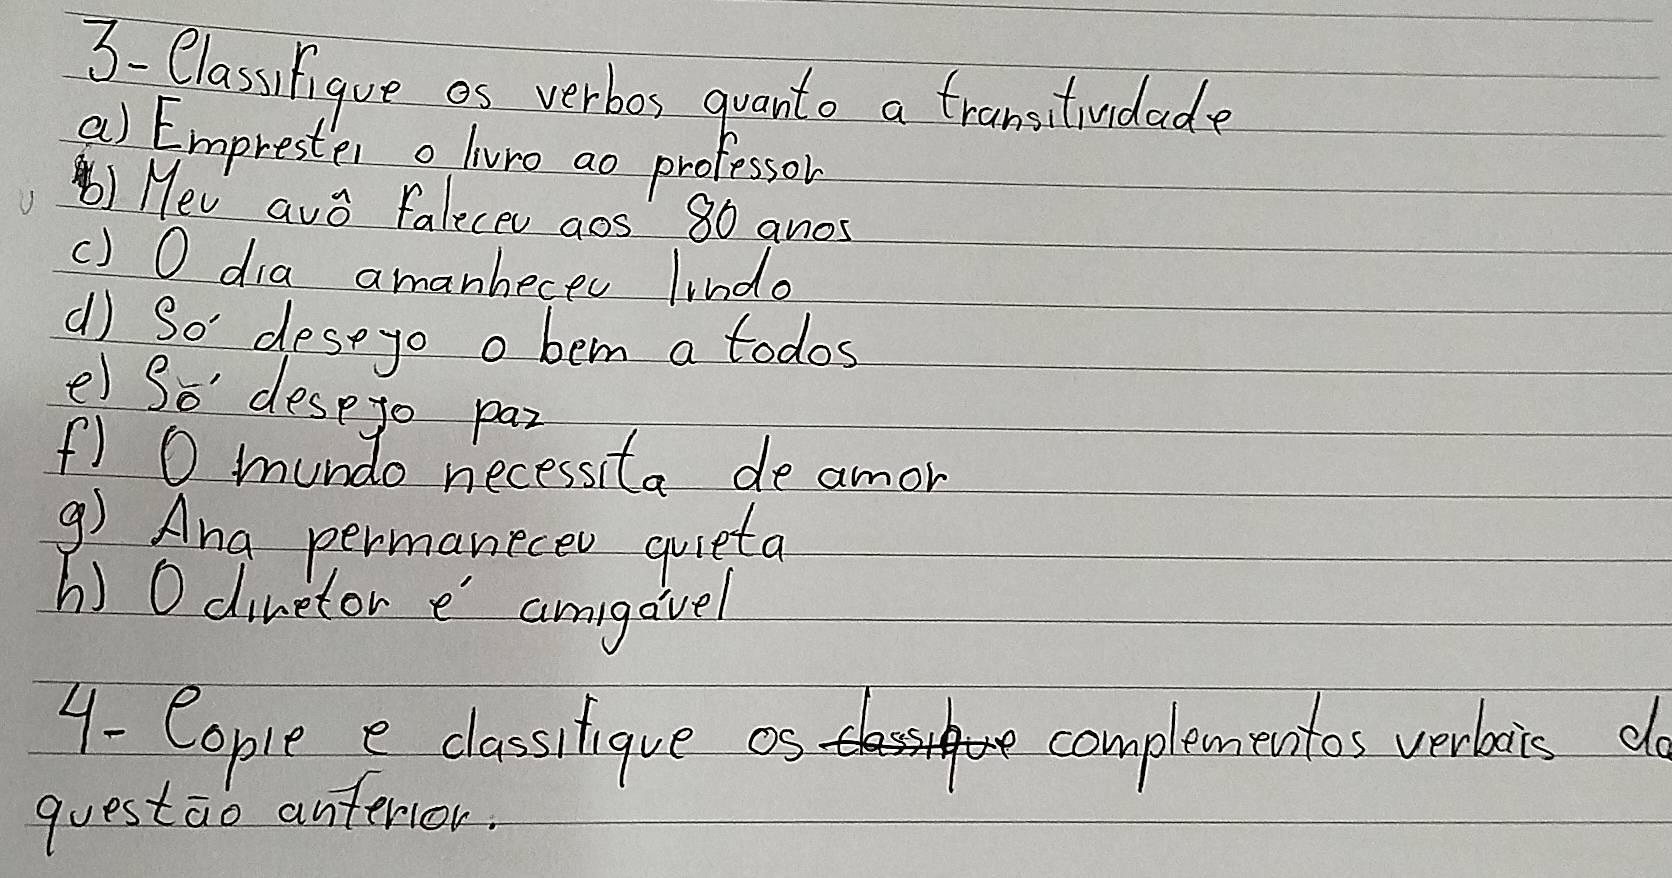 3- Classifique os verbos quanto a transitividade
a) Emprestei o livro ao professor
b) Meu avô faleceu aos 80 anos
c) O dia amanheceu lindo
d) Só desejo o bem a todos
e) Só desejo paz
f) O mundo necessita de amor
g) Ana permaneceu quieta
h) O diretor é amigável
4- Copie e classifique os ~~classifique~~ complementos verbais da
questão anterior.